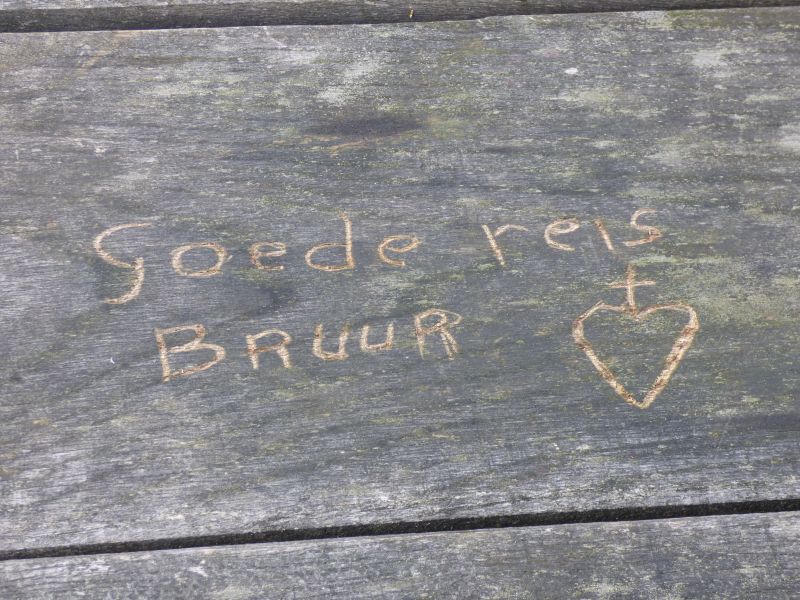 Goede reis
BRUUR